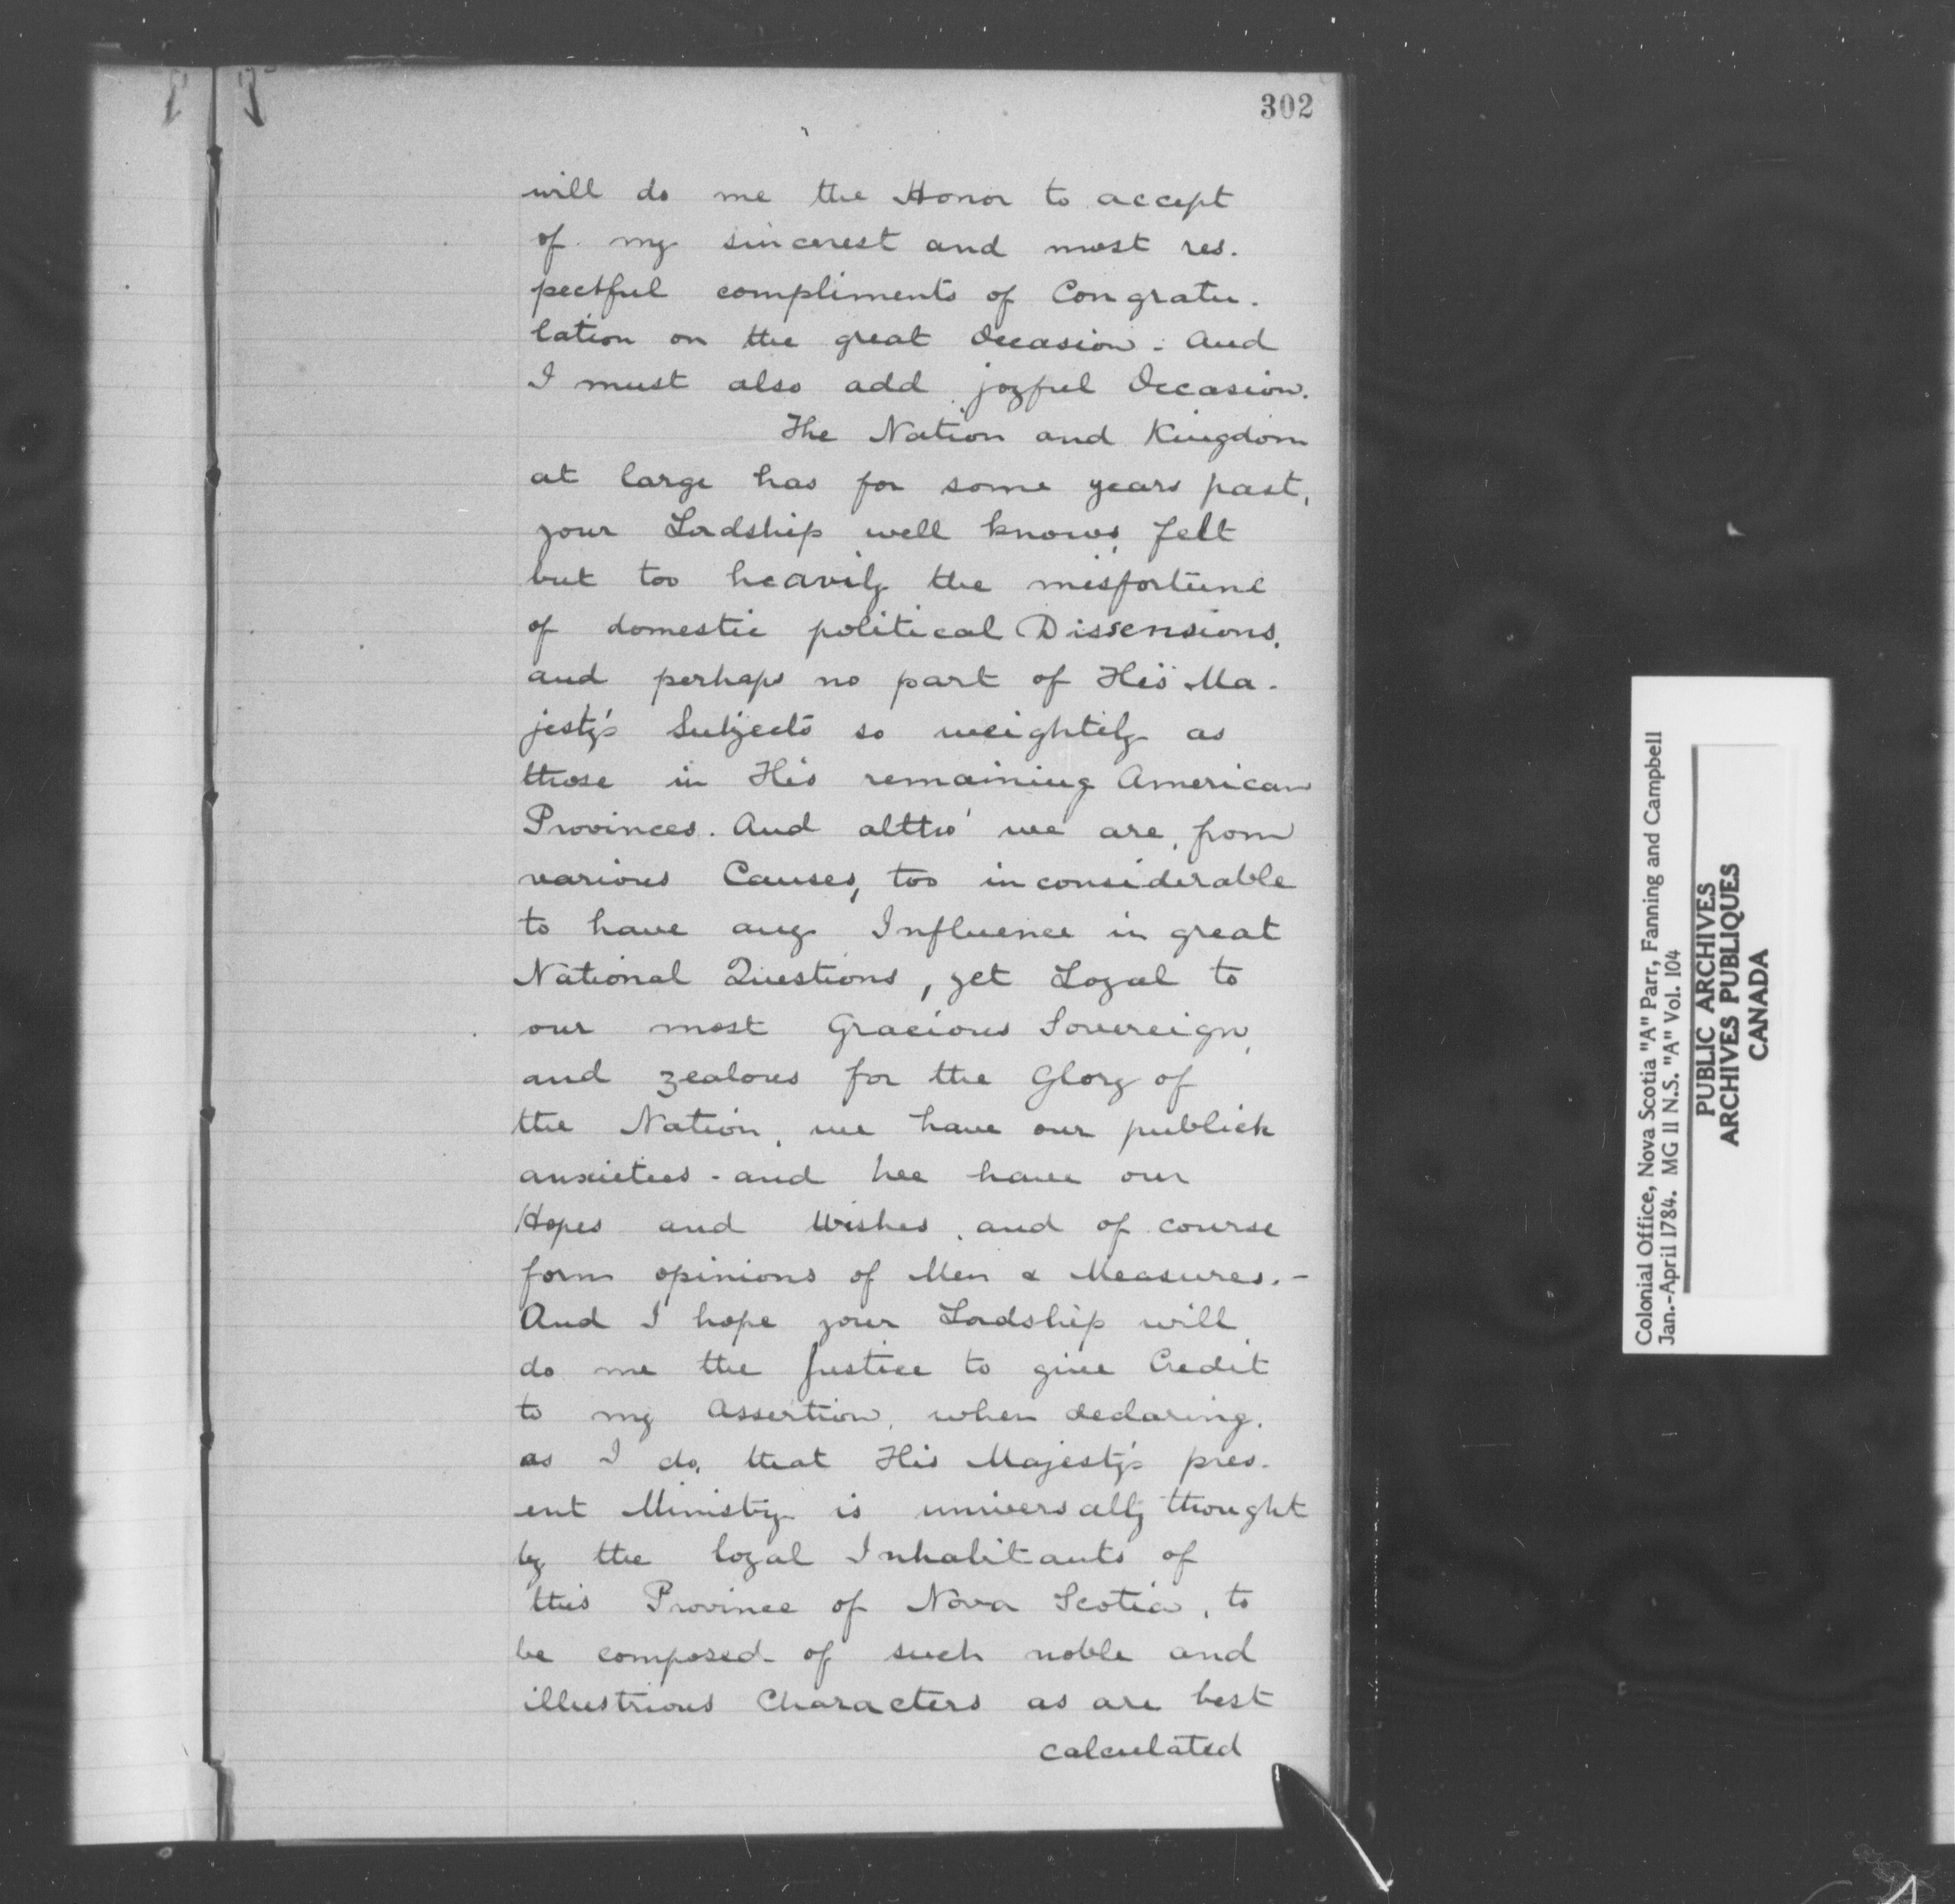 302
will do me the Honor to accept
of my sincerest and most res.
pectful compliments of Congratu.
lation on the great Occasion. And
I must also add joyful Occasion.
The Nation and Kingdom
at large has for some years past,
your Lordship well knows, felt
but too heavily the misfortune
of domestic political Dissensions,
and perhaps no part of His Ma-
jesty's Subjects so weightily as
those in His remaining American
Provinces. And altho' we are, from
various Causes, too inconsiderable
to have any Influence in great
National Questions, yet Loyal to
our most Gracious Sovereign,
and zealous for the Glory of
the Nation, we have our publick
anxieties - and we have our
Hopes and Wishes, and of course
form opinions of Men & Measures. -
And I hope your Lordship will
do me the Justice to give Credit
to my Assertion, when declaring,
as I do, that His Majesty's pres-
ent Ministry is universally thought
by the loyal Inhabitants of
this Province of Nova Scotia, to
be composed of such noble and
illustrious Characters as are best
calculated
Colonial Office, Nova Scotia "A" Parr, Fanning and Campbell
Jan.-April 1784. MG 11 N.S. "A" Vol. 104
PUBLIC ARCHIVES
ARCHIVES PUBLIQUES
CANADA